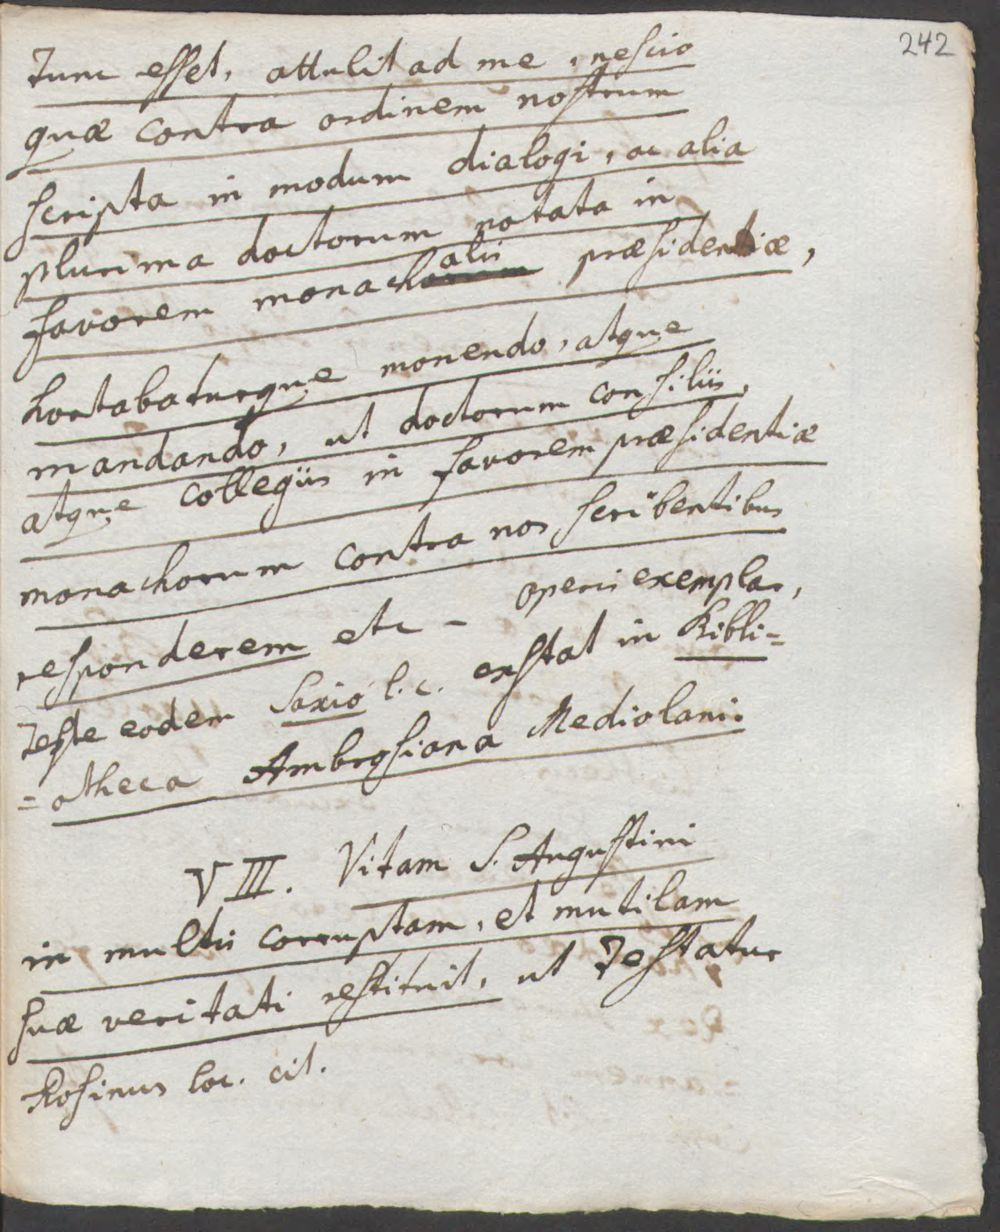 242
tunc esset, attulit ad me, nescio
quæ contra ordinem nostrum
scripta in modum dialogi, ac alia
plurima doctorum notata in
favorem monachalis præsidentiæ,
hortabaturque monendo, atque
mandando, ut doctorum consiliis,
atque collegiis in favorem præsidentiæ
monachorum contra nos scribentibus
responderem etc - operis exemplar,
teste eodem Saxio l. c. exstat in Bibli=
=otheca Ambrosiana Mediolani.
VIII. Vitam S. Augustini
in multis corruptam, et mutilam
suæ veritati restituit, ut testatur
Rosinus loc. cit.